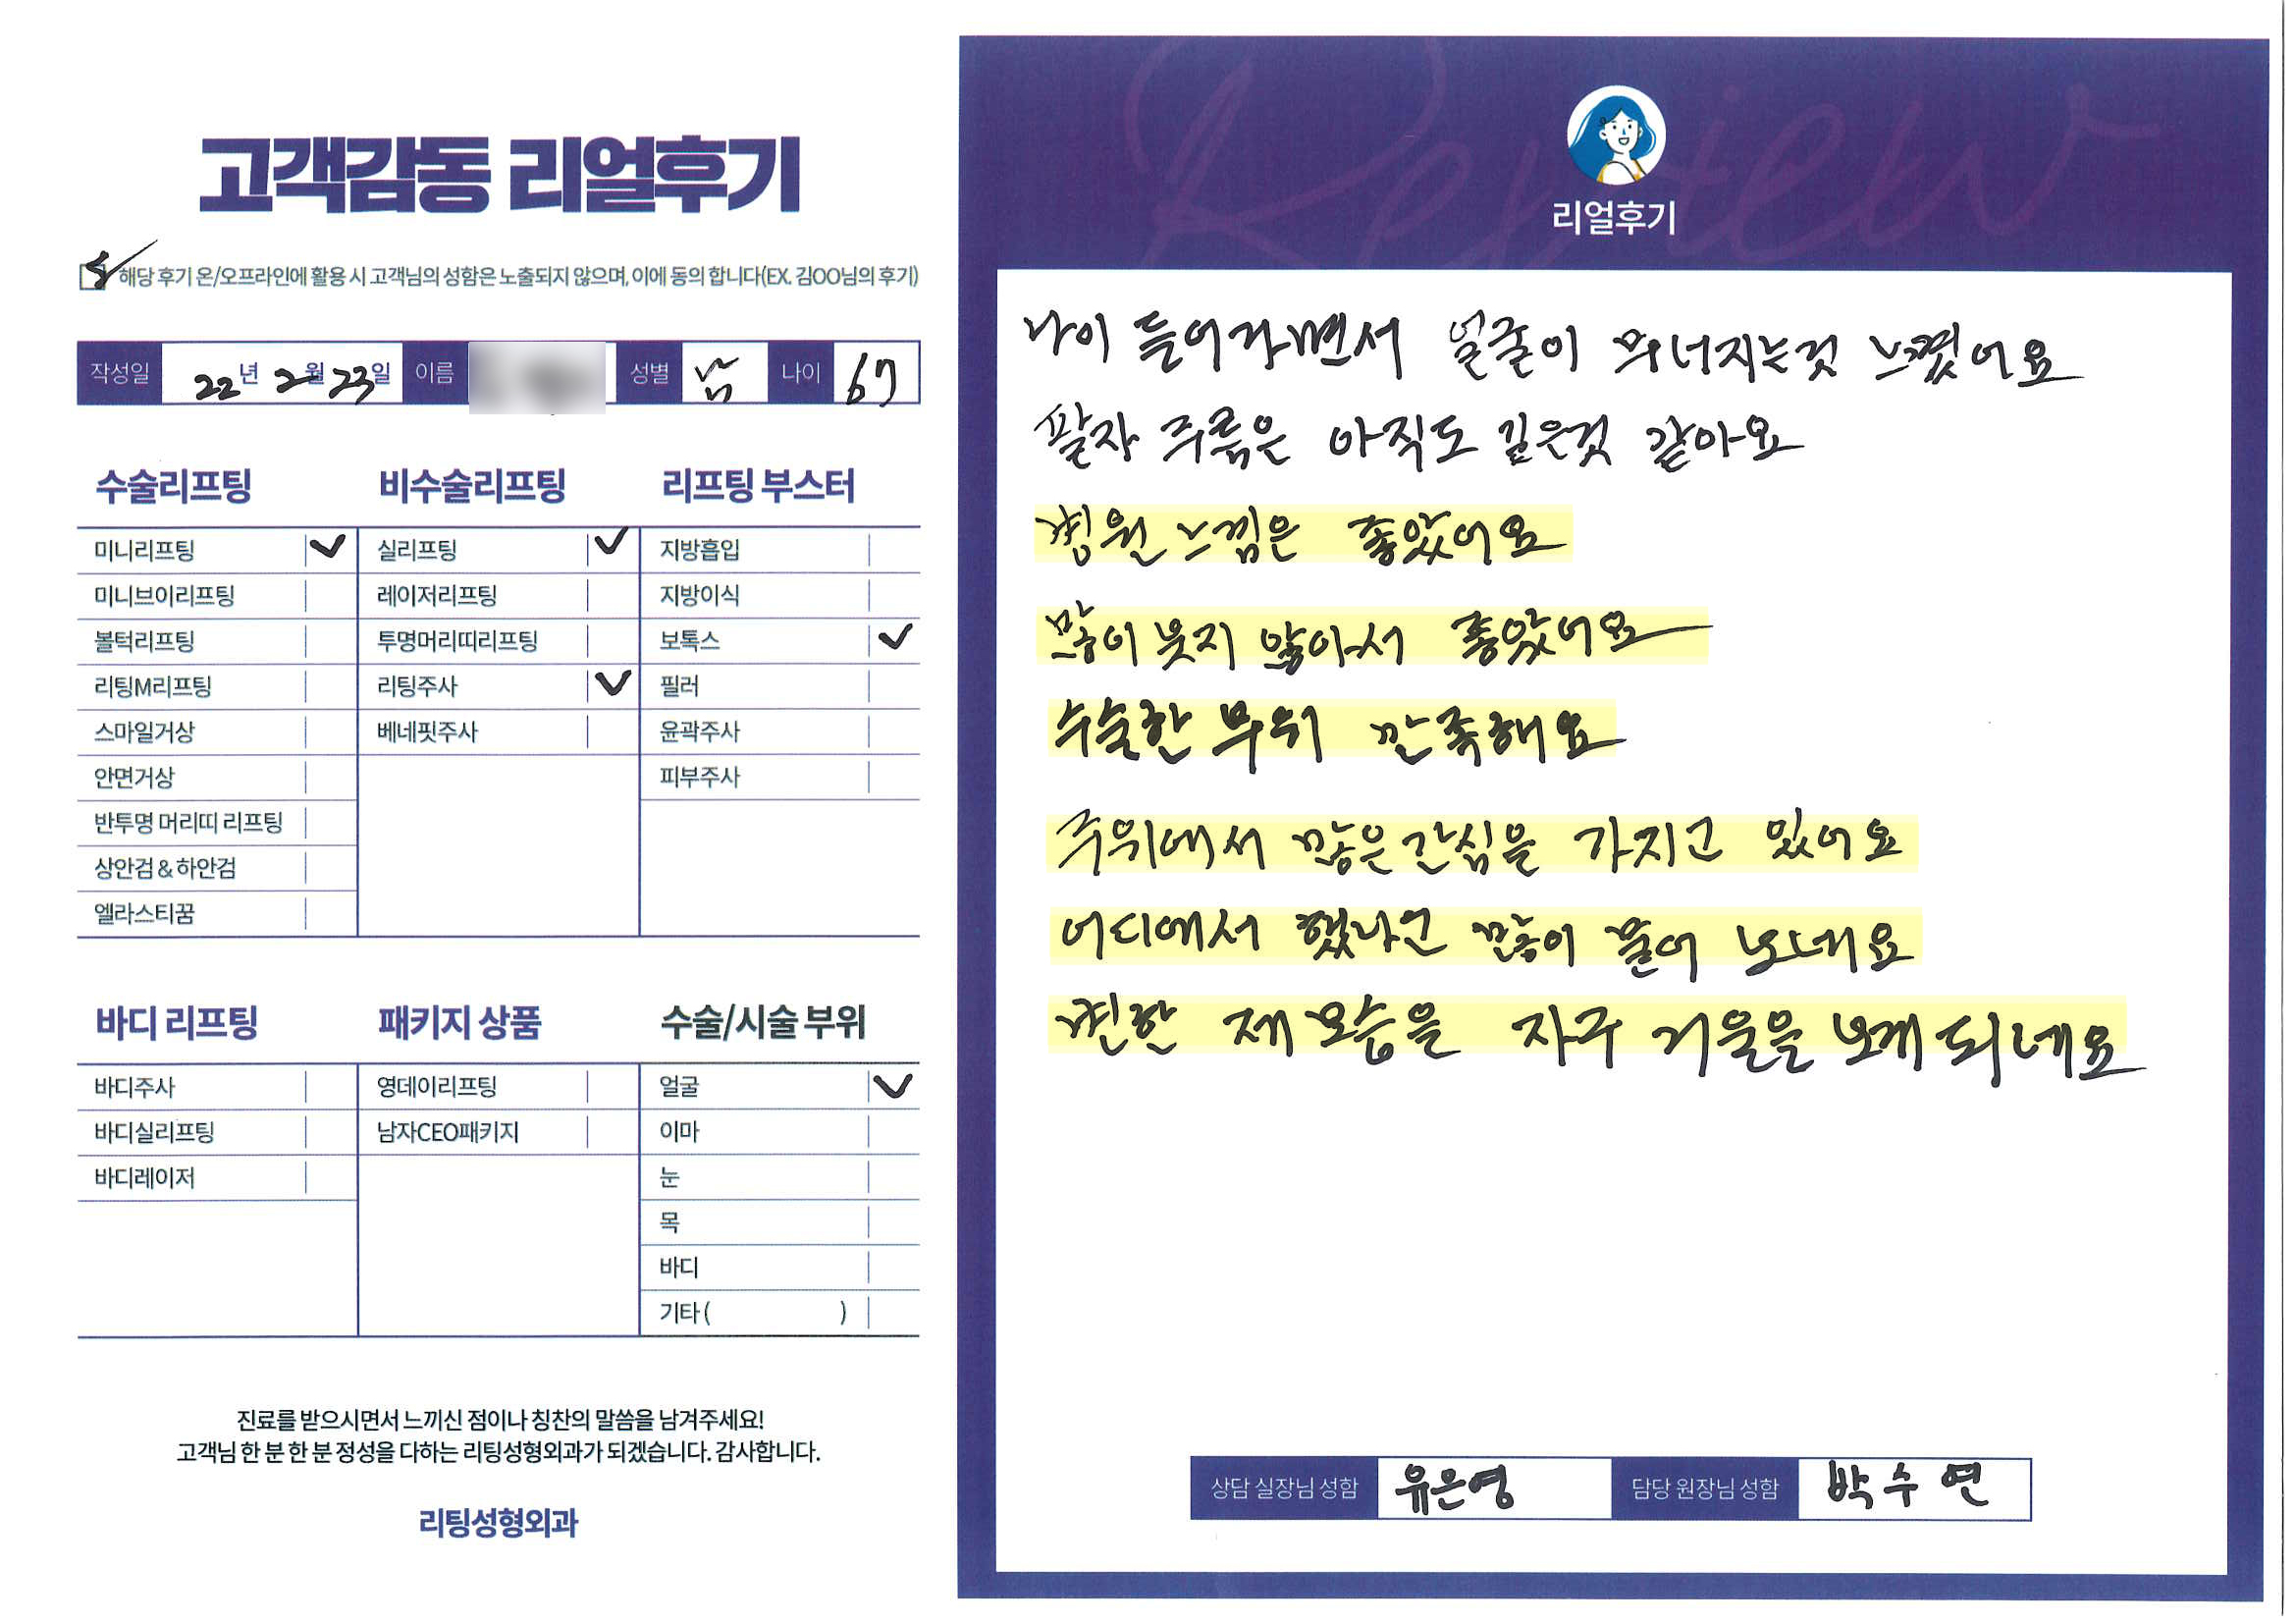 고객감동 리얼후기
해당 후기 온/오프라인에 활용 시 고객님의 성함은 노출되지 않으며, 이에 동의 합니다(EX. 김OO님의 후기)
작성일 22년 2월 23일 이름 성별 남 나이 67
수술리프팅 비수술리프팅 리프팅 부스터
미니리프팅 실리프팅 지방흡입
미니브이리프팅 레이저리프팅 지방이식
볼턱리프팅 투명머리띠리프팅 보톡스
리팅M리프팅 리팅주사 필러
스마일거상 베네핏주사 윤곽주사
안면거상 피부주사
반투명 머리띠 리프팅
상안검 & 하안검
엘라스티꿈
바디 리프팅 패키지 상품 수술/시술 부위
바디주사 영데이리프팅 얼굴
바디실리프팅 남자CEO패키지 이마
바디레이저 눈
목
바디
기타 ( )
진료를 받으시면서 느끼신 점이나 칭찬의 말씀을 남겨주세요!
고객님 한 분 한 분 정성을 다하는 리팅성형외과가 되겠습니다. 감사합니다.
리팅성형외과
Review
리얼후기
나이 들어가면서 얼굴이 무너지는것 느꼈어요
팔자 주름은 아직도 깊은것 같아요
병원 느낌은 좋았어요
많이 붓지 않아서 좋았어요
수술한 부위 만족해요
주위에서 많은관심을 가지고 있어요
어디에서 했냐고 많이 물어 보네요
변한 제 모습을 자꾸 거울을 보게 되네요
상담 실장님 성함 유은영 담당 원장님 성함 박수연